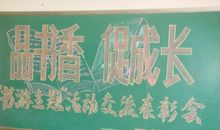 品书香 促成长
书游主题活动交流表彰会